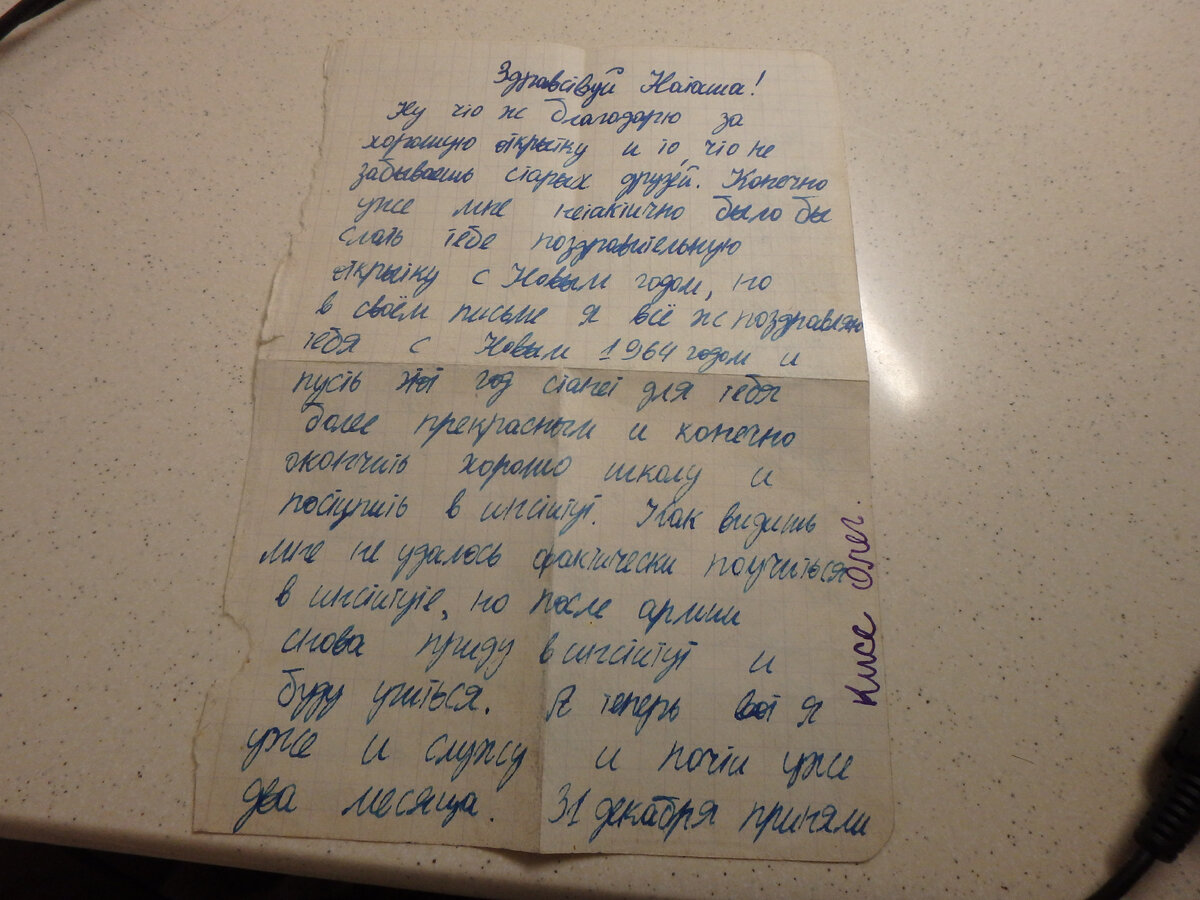 Здравствуй Наташа!
Ну что ж благодарю за
хорошую открытку и то, что не
забываешь старых друзей. Конечно
уже мне нетактично было бы
слать тебе поздравительную
открытку с Новым годом, но
в своём письме я всё ж поздравляю
тебя с Новым 1964 годом и
пусть этот год станет для тебя
более прекрасным и конечно
окончить хорошо школу и
поступить в институт. Как видишь
мне не удалось фактически поучиться
в институте, но после армии
снова приду в институт и
буду учиться. А теперь вот я
уже и служу и почти уже
два месяца. 31 декабря приняли
Олег